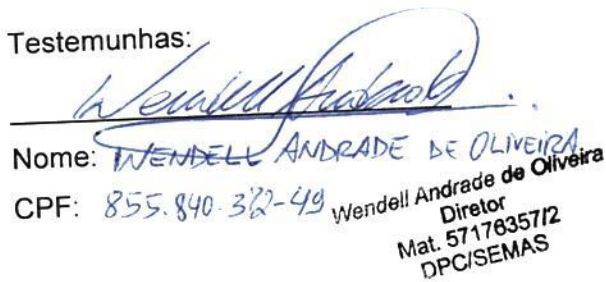 Testemunhas:
Wendell Andrade
Nome: WENDELL ANDRADE DE OLIVEIRA
CPF: 855.840.372-49
Wendell Andrade de Oliveira
Diretor
Mat. 57176357/2
DPC/SEMAS